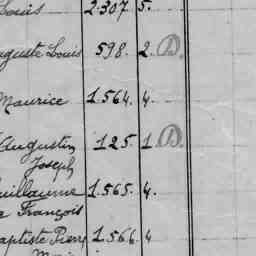 Louis 2.307 5.
Auguste Louis 598. 2. (D)
Maurice 1.564. 4.
Augustin 125. 1. (D)
Joseph
Guillaume 1.565. 4.
François
Baptiste Pierre 1.566. 4